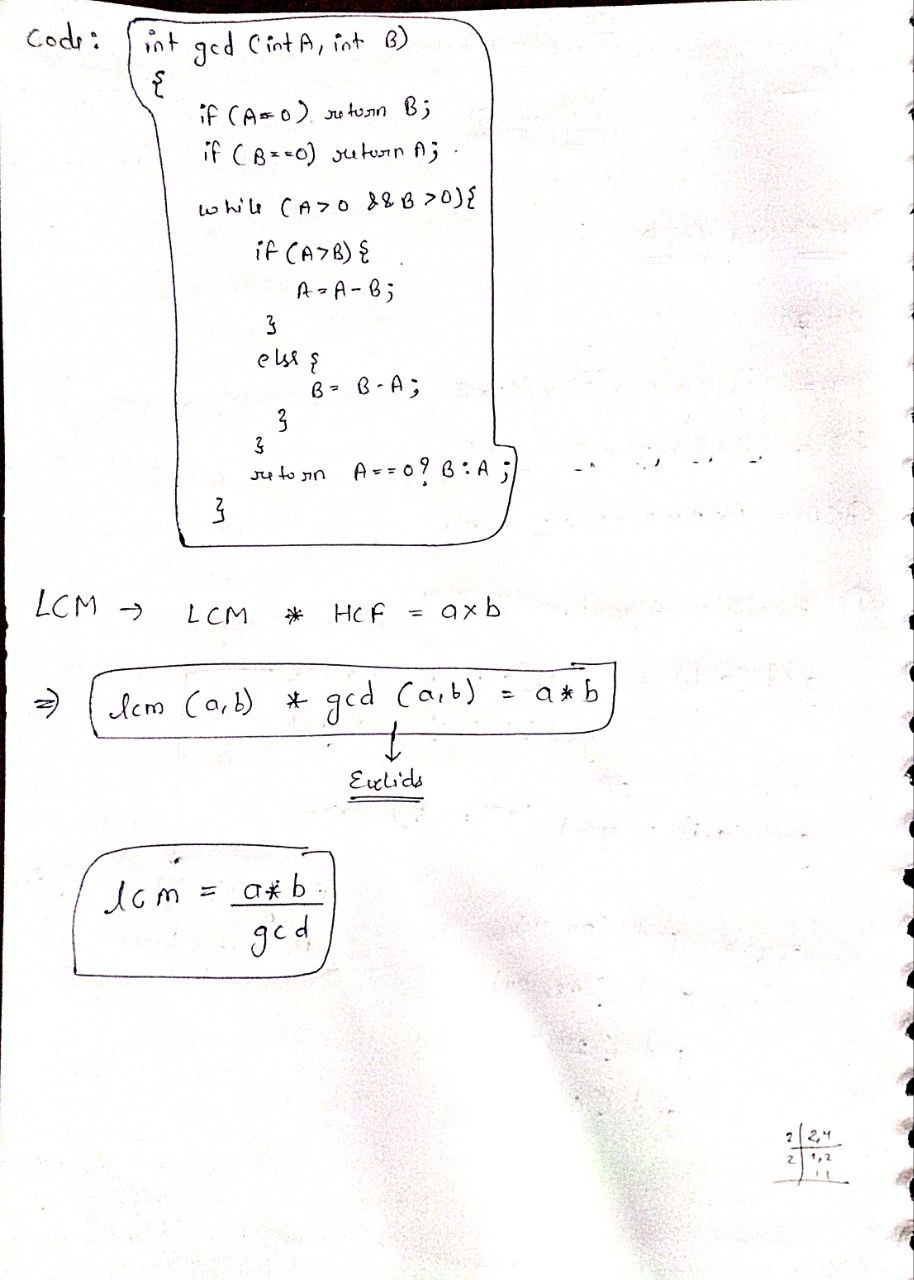 Code:
int gcd (int A, int B)
{
if (A==0) return B;
if (B==0) return A;
while (A>0 && B>0){
if (A>B) {
A = A - B;
}
else {
B = B - A;
}
}
return A==0? B : A ;
}
LCM → LCM * HCF = a×b
⇒ lcm (a,b) * gcd (a,b) = a*b
↓
Euclids
lcm = a*b
gcd
2 | 2,4
2 | 1,2
1 1